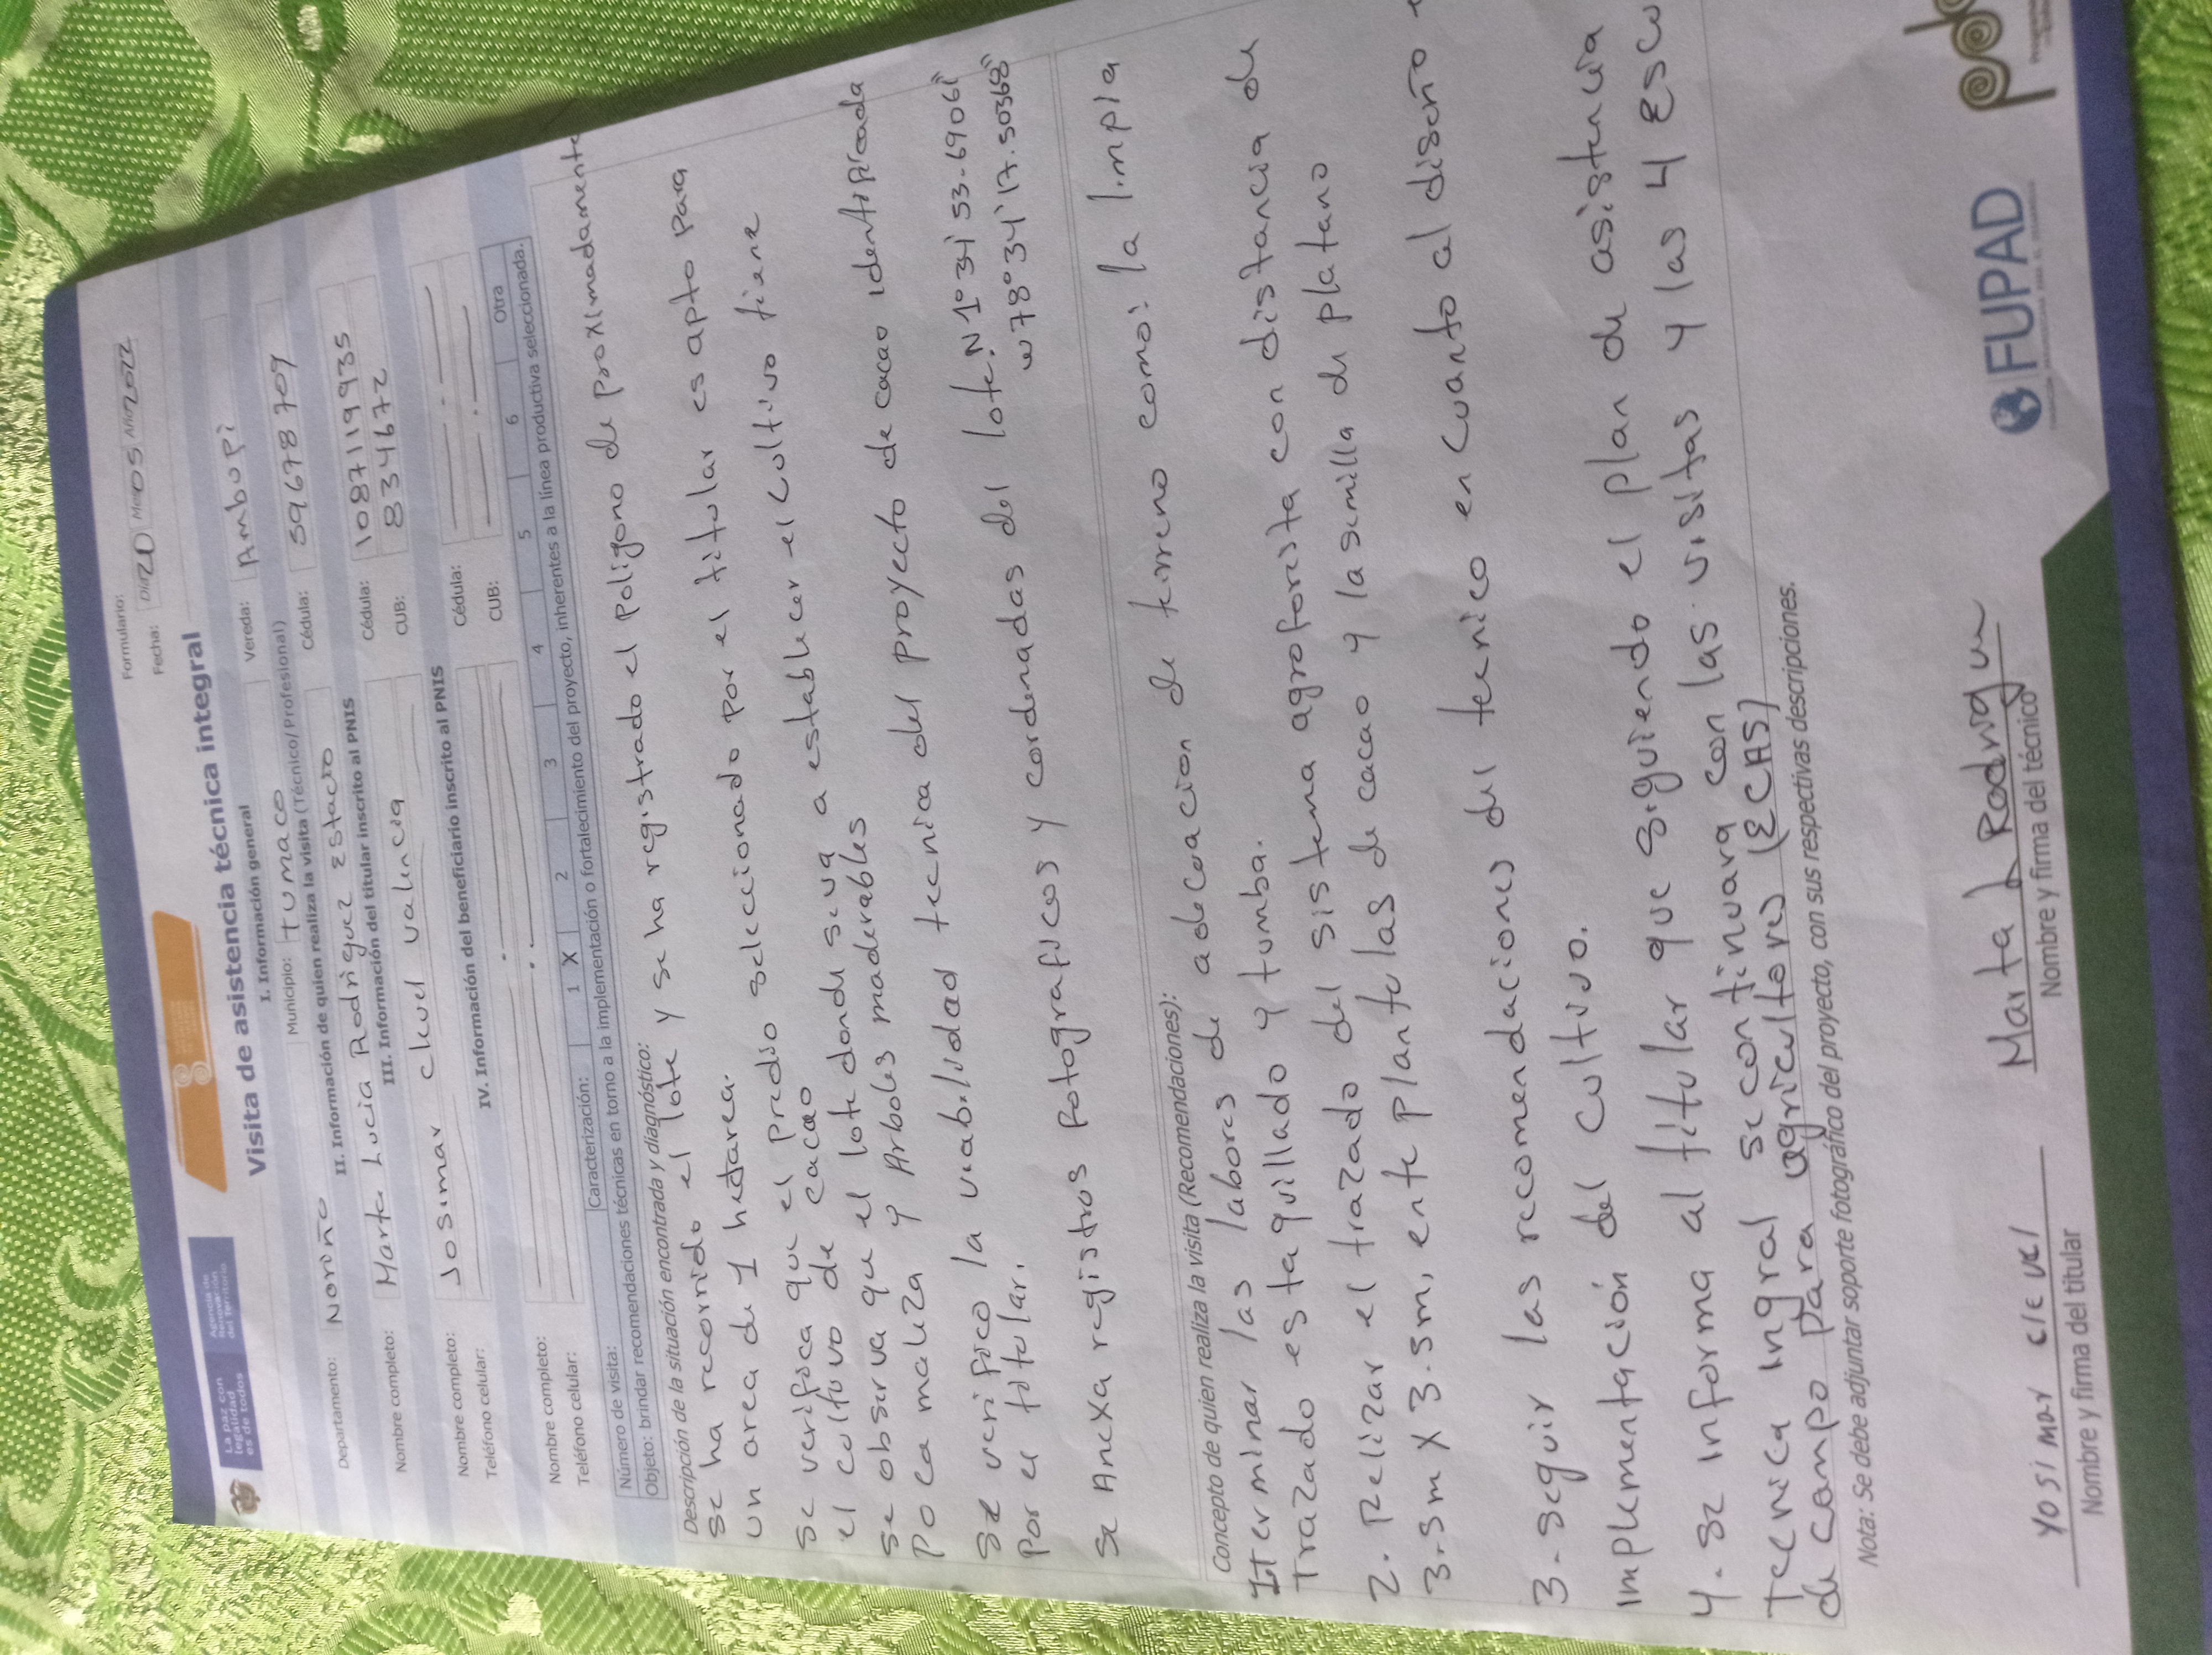 La paz con
legalidad
es de todos
Agencia de
Renovación
del Territorio
Formulario:
Fecha: Día 20 Mes 05 Año 2022
Visita de asistencia técnica integral
I. Información general
Departamento: Nariño Municipio: Tumaco Vereda: Ambupi
II. Información de quien realiza la visita (Técnico/Profesional)
Nombre completo: Marta Lucia Rodriguez Estacio Cédula: 59678709
III. Información del titular inscrito al PNIS
Nombre completo: Josimar clevel valencia Cédula: 1087119935
Teléfono celular: CUB: 8334672
IV. Información del beneficiario inscrito al PNIS
Nombre completo: Cédula:
Teléfono celular: CUB:
Número de visita: Caracterización: 1 X 2 3 4 5 6 Otra
Objeto: brindar recomendaciones técnicas en torno a la implementación o fortalecimiento del proyecto, inherentes a la línea productiva seleccionada.
Descripción de la situación encontrada y diagnóstico:
se ha recorrido el lote y se ha registrado el poligono de proximadamente
un area de 1 hectarea.
se verifica que el predio seleccionado por el titular es apto para
el cultivo de cacao
se observa que el lote donde se va a establecer el cultivo tiene
poca maleza y Arboles maderables
se verifico la viabilidad tecnica del proyecto de cacao identificada
por el titular.
se Anexa registros fotograficos y cordenadas del lote. N 1° 34' 53.69061"
w 78° 34' 17.50368"
Concepto de quien realiza la visita (Recomendaciones):
1. terminar las labores de adecuacion de terreno como: la limpia
trazado estaquillado y tumba.
2. Relizar el trazado del sistema agroforesta con distancia de
3.5m x 3.5m, ente plantulas de cacao y la semilla de platano
3. seguir las recomendaciones del tecnico en cuanto al diseño e
implementación del cultivo.
4. se informa al titular que siguiendo el plan de asistencia
tecnica ingral se continuara con las visitas y las 4 Escu
de campo para agricultores (ECAS)
Nota: Se debe adjuntar soporte fotográfico del proyecto, con sus respectivas descripciones.
Yosimar clevel
Nombre y firma del titular
Marta L Rodrigue
Nombre y firma del técnico
FUPAD